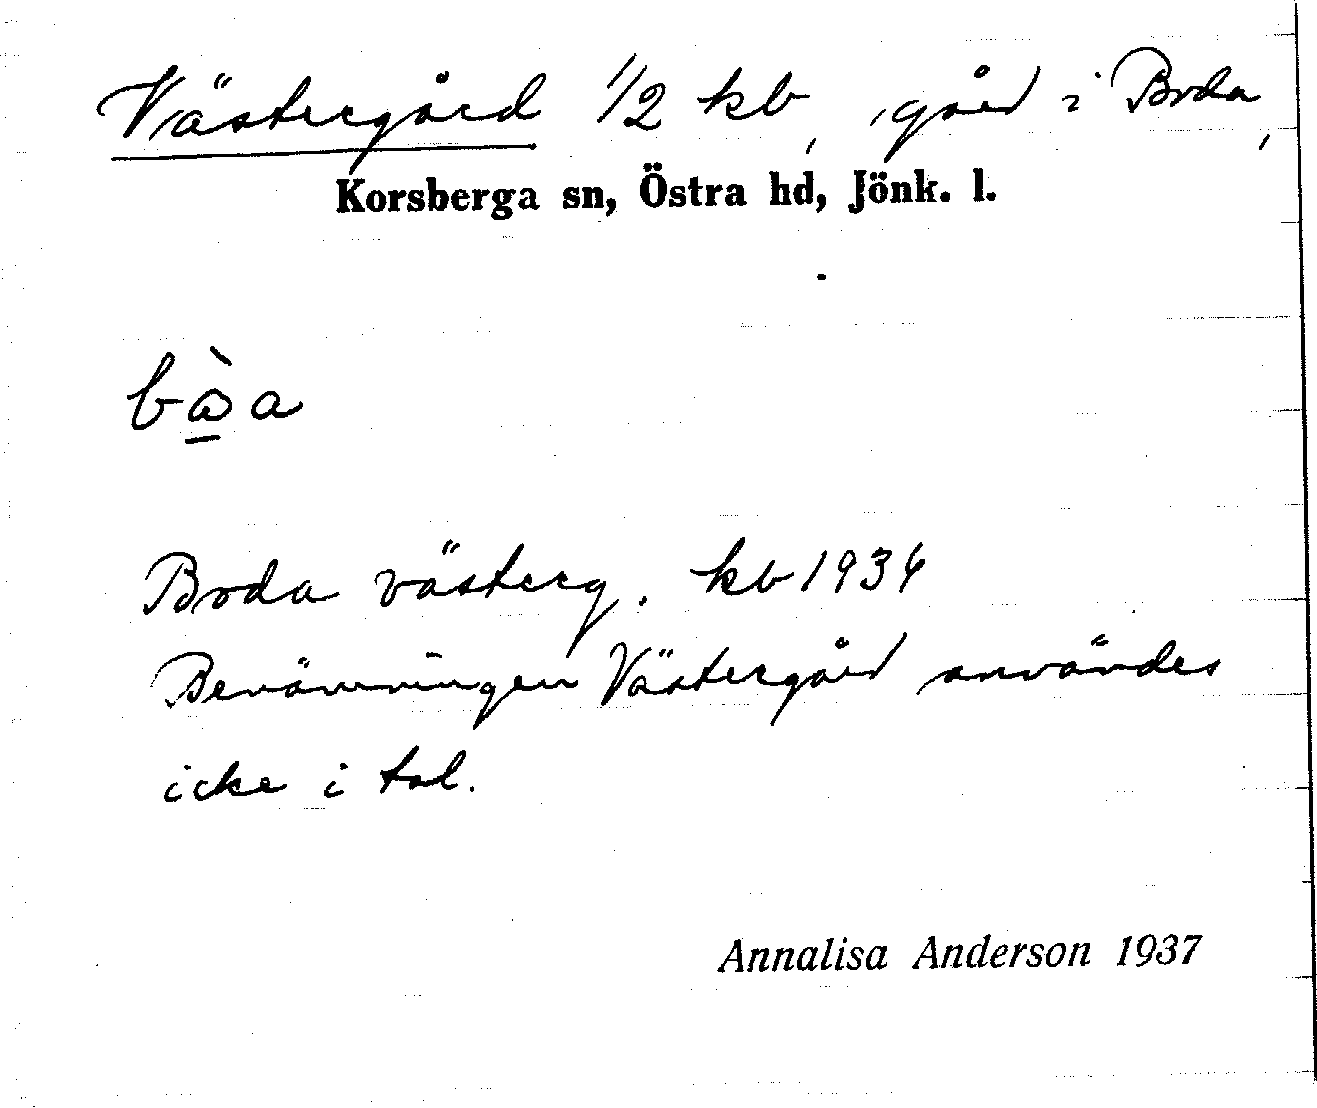 Västergård 1/2 kb, gård i Boda,
Korsberga sn, Östra hd, Jönk. l.
Boda västerg. kb 1934
Benämningen Västergård användes
icke i tal.
Annalisa Anderson 1937